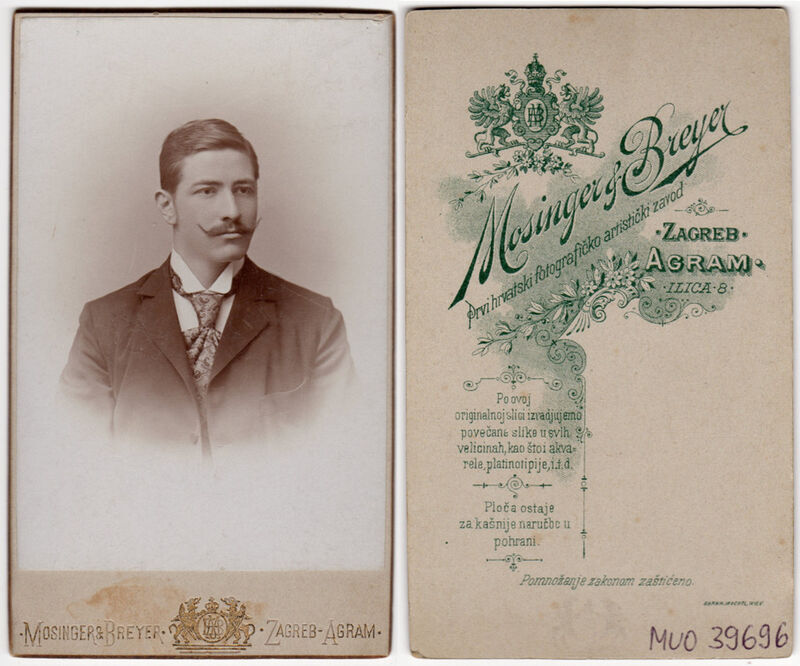 MOSINGER & BREYER · ZAGREB-AGRAM ·
Mosinger & Breyer
Prvi hrvatski fotografičko artistički zavod
· ZAGREB ·
AGRAM ·
· ILICA · 8 ·
Po ovoj
originalnoj slici izradjujemo
povečane slike u svih
velicinah, kao što i akva-
rele, platinotipije, i.t.d.
Ploča ostaje
za kašnije naručbe u
pohrani.
Pomnožanje zakonom zaštićeno.
MUO 39696